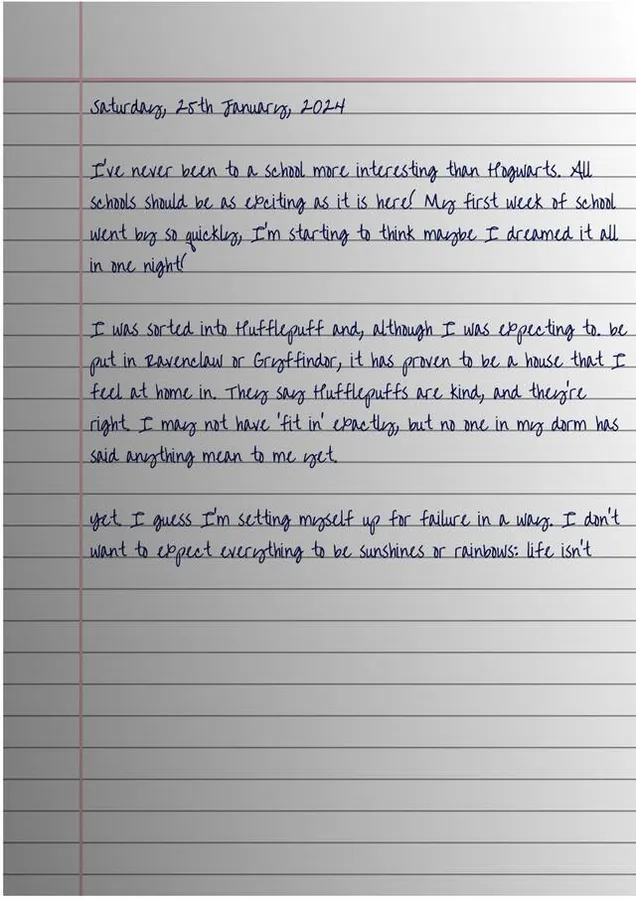 Saturday, 25th January, 2024
I've never been to a school more interesting than Hogwarts. All
schools should be as exciting as it is here! My first week of school
went by so quickly, I'm starting to think maybe I dreamed it all
in one night!
I was sorted into Hufflepuff and, although I was expecting to. be
put in Ravenclaw or Gryffindor, it has proven to be a house that I
feel at home in. They say Hufflepuffs are kind, and they're
right. I may not have 'fit in' exactly, but no one in my dorm has
said anything mean to me yet.
yet. I guess I'm setting myself up for failure in a way. I don't
want to expect everything to be sunshines or rainbows: life isn't